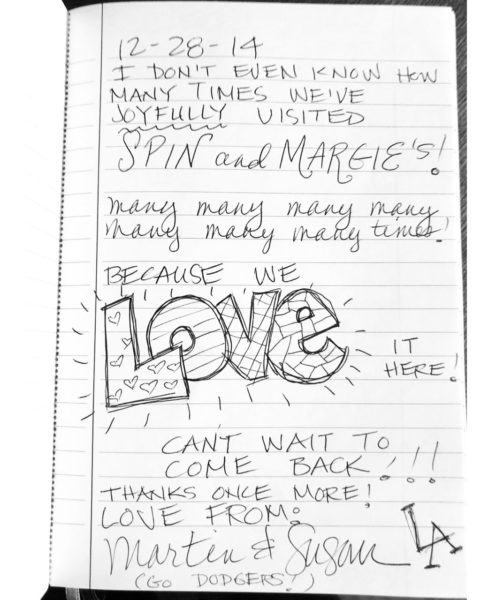 12-28-14
I DON'T EVEN KNOW HOW
MANY TIMES WE'VE
JOYFULLY VISITED
SPIN and MARGIE'S!
many many many many
many many many times!
BECAUSE WE
LOVE
IT
HERE!
CANT WAIT TO
COME BACK!!!
THANKS ONCE MORE!
LOVE FROM:
Martin & Susan
LA
(GO DODGERS!)